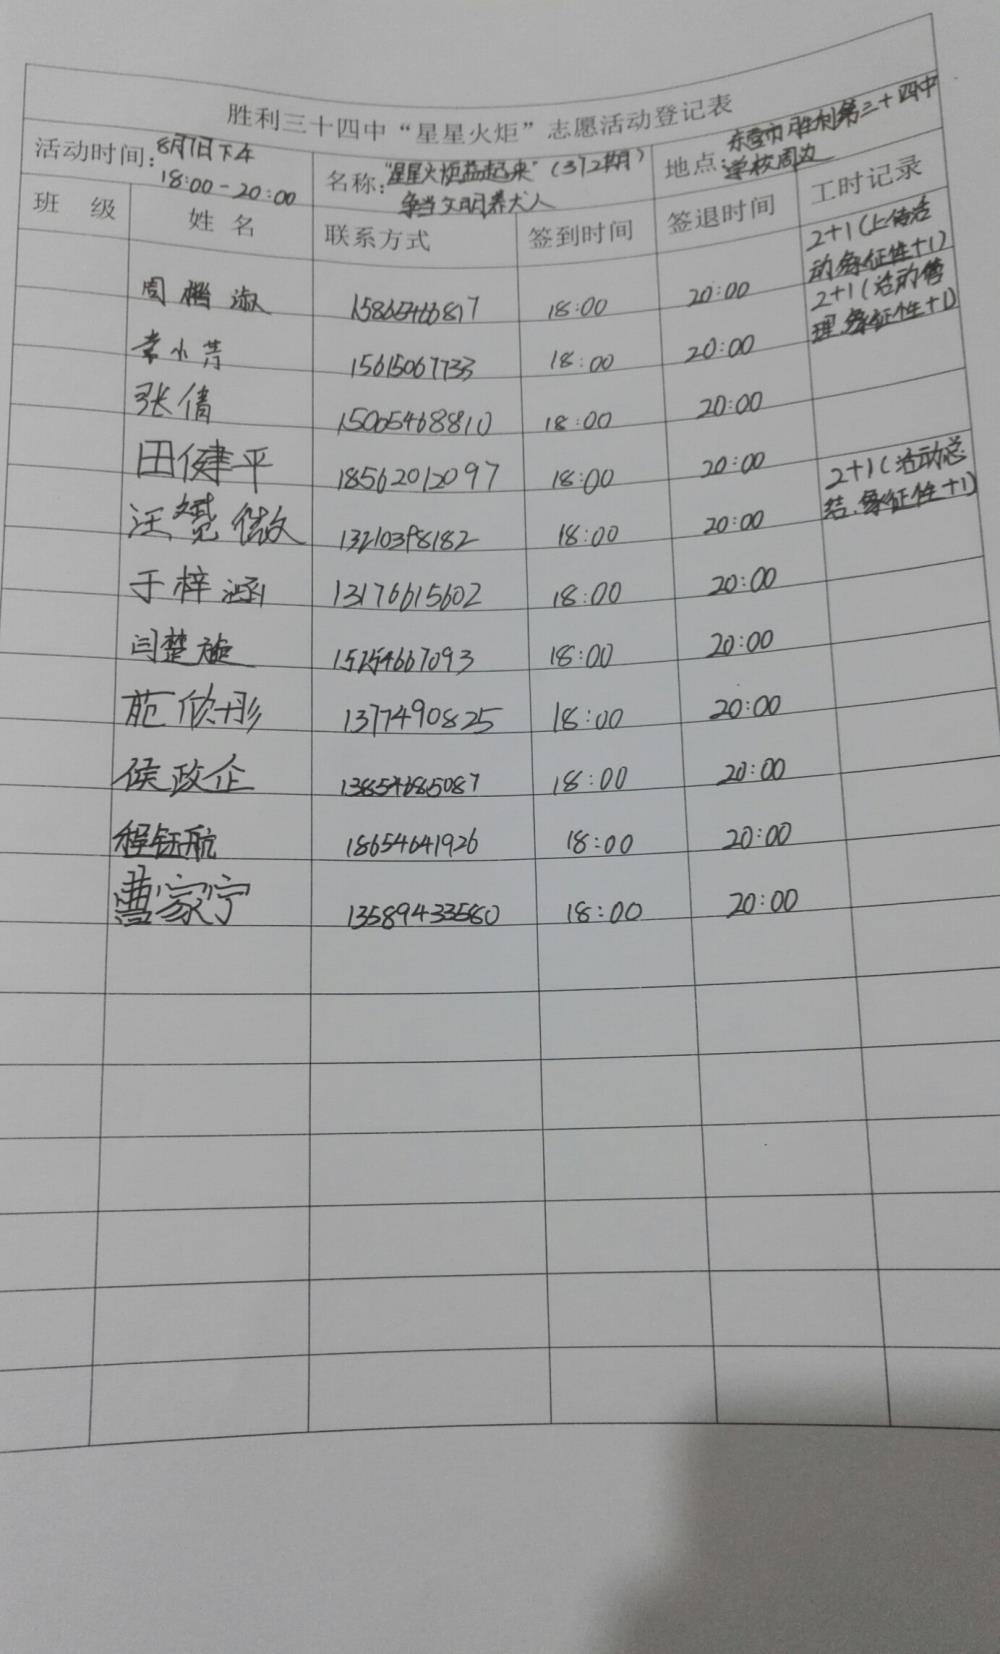 胜利三十四中“星星火炬”志愿活动登记表
活动时间：8月7日下午 18:00-20:00 名称：“星星火炬益起来”（372期） 争当文明养犬人 地点：东营市胜利第三十四中学校周边
班 级 姓 名 联系方式 签到时间 签退时间 工时记录
周楷淑 15865466817 18:00 20:00 2+1（上传活动,象征性+1）
常小芳 15615067733 18:00 20:00 2+1（活动管理,象征性+1）
张倩 15065468810 18:00 20:00
田健平 18562012097 18:00 20:00
汪赟微 13210398182 18:00 20:00 2+1（活动总结,象征性+1）
于梓涵 13176615602 18:00 20:00
闫楚 15254667093 18:00 20:00
范欣彤 1377490825 18:00 20:00
侯政企 13854685087 18:00 20:00
程钰航 18654641926 18:00 20:00
曹家宁 13589433580 18:00 20:00